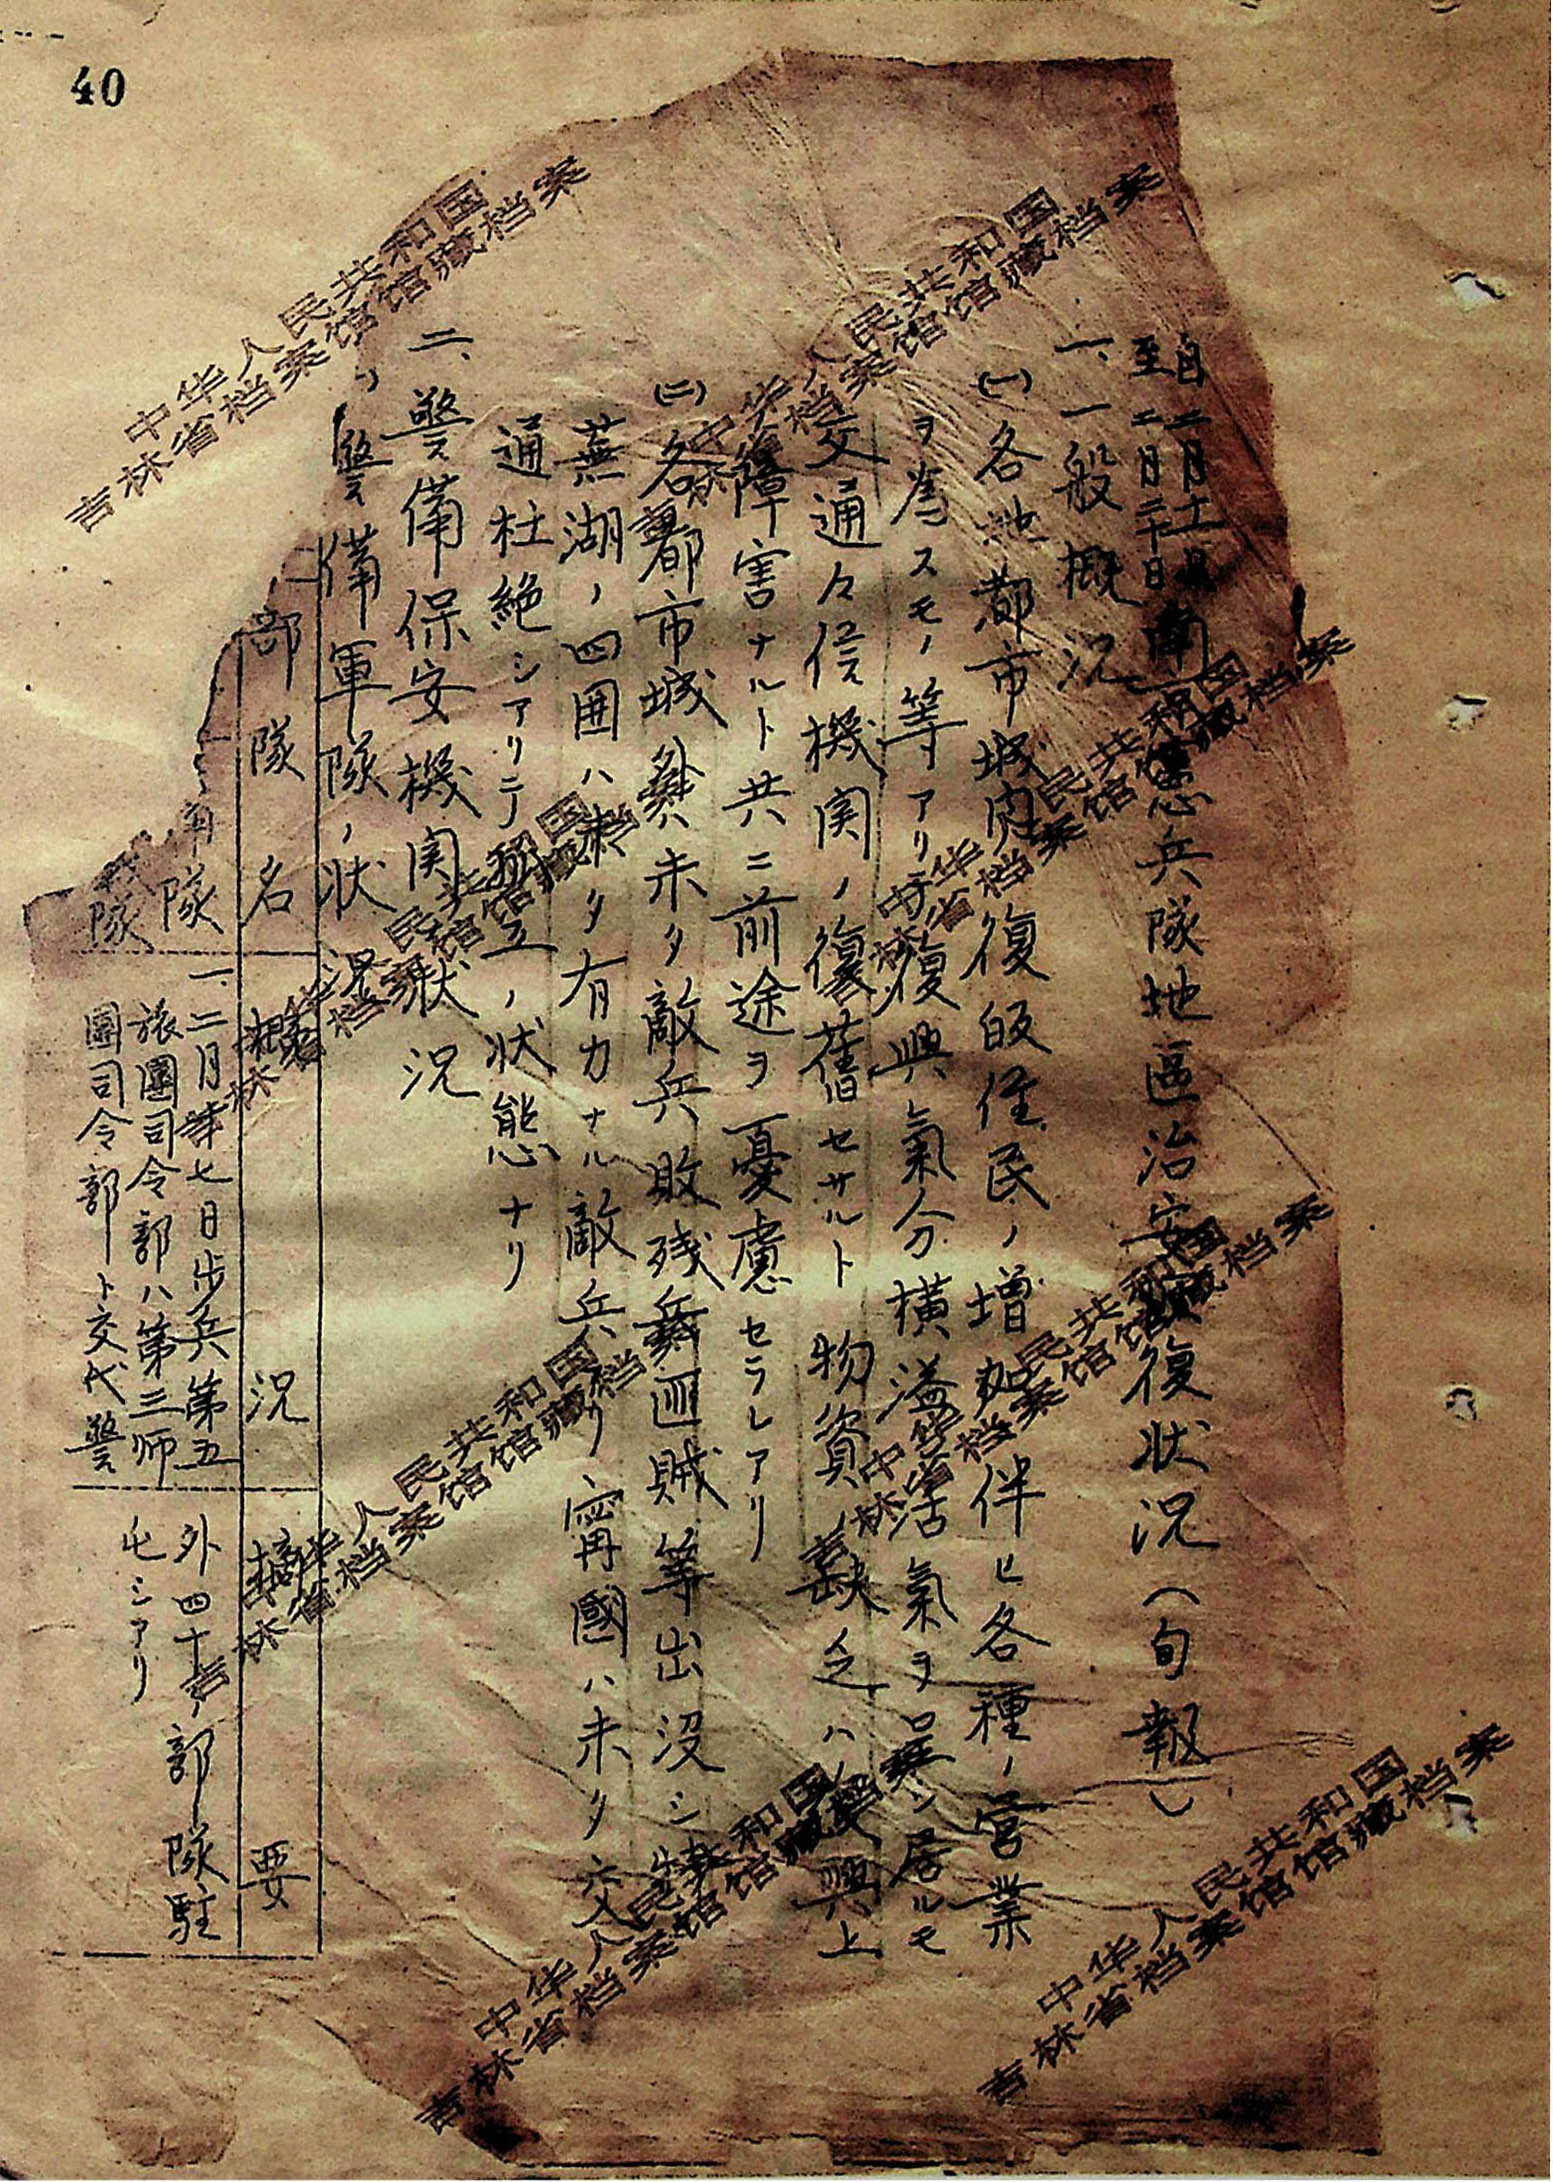 40
自二月十一日
至二月二十日 南京憲兵隊地區治安恢復状況(旬報)
一、一般概況
(一)各地都市城内復皈住民ノ増加ニ伴ヒ各種ノ営業
ヲ為スモノ等アリテ復興氣分横溢活氣ヲ呈シ居ルモ
交通々信機関ノ復舊セサルト物資ノ缺乏ハ復興上
ノ障害ナルト共ニ前途ヲ憂慮セラレアリ
(二)各都市城外ハ未タ敵兵敗残兵匪賊等出没シ特ニ
蕪湖ノ四囲ハ未タ有力ナル敵兵アリ、寗國ハ未タ交
通杜絶シアリテ孤立ノ状態ナリ
二、警備保安機関状況
警備軍隊ノ状況
部隊名 概況 摘要
隊 一、二月十七日歩兵第五 外四十ノ部隊駐
隊 旅團司令部ハ第三師 屯シアリ
團司令部ト交代警
中华人民共和国
吉林省档案馆馆藏档案
中华人民共和国
吉林省档案馆馆藏档案
中华人民共和国
吉林省档案馆馆藏档案
中华人民共和国
吉林省档案馆馆藏档案
中华人民共和国
吉林省档案馆馆藏档案
中华人民共和国
吉林省档案馆馆藏档案
中华人民共和国
吉林省档案馆馆藏档案
中华人民共和国
吉林省档案馆馆藏档案